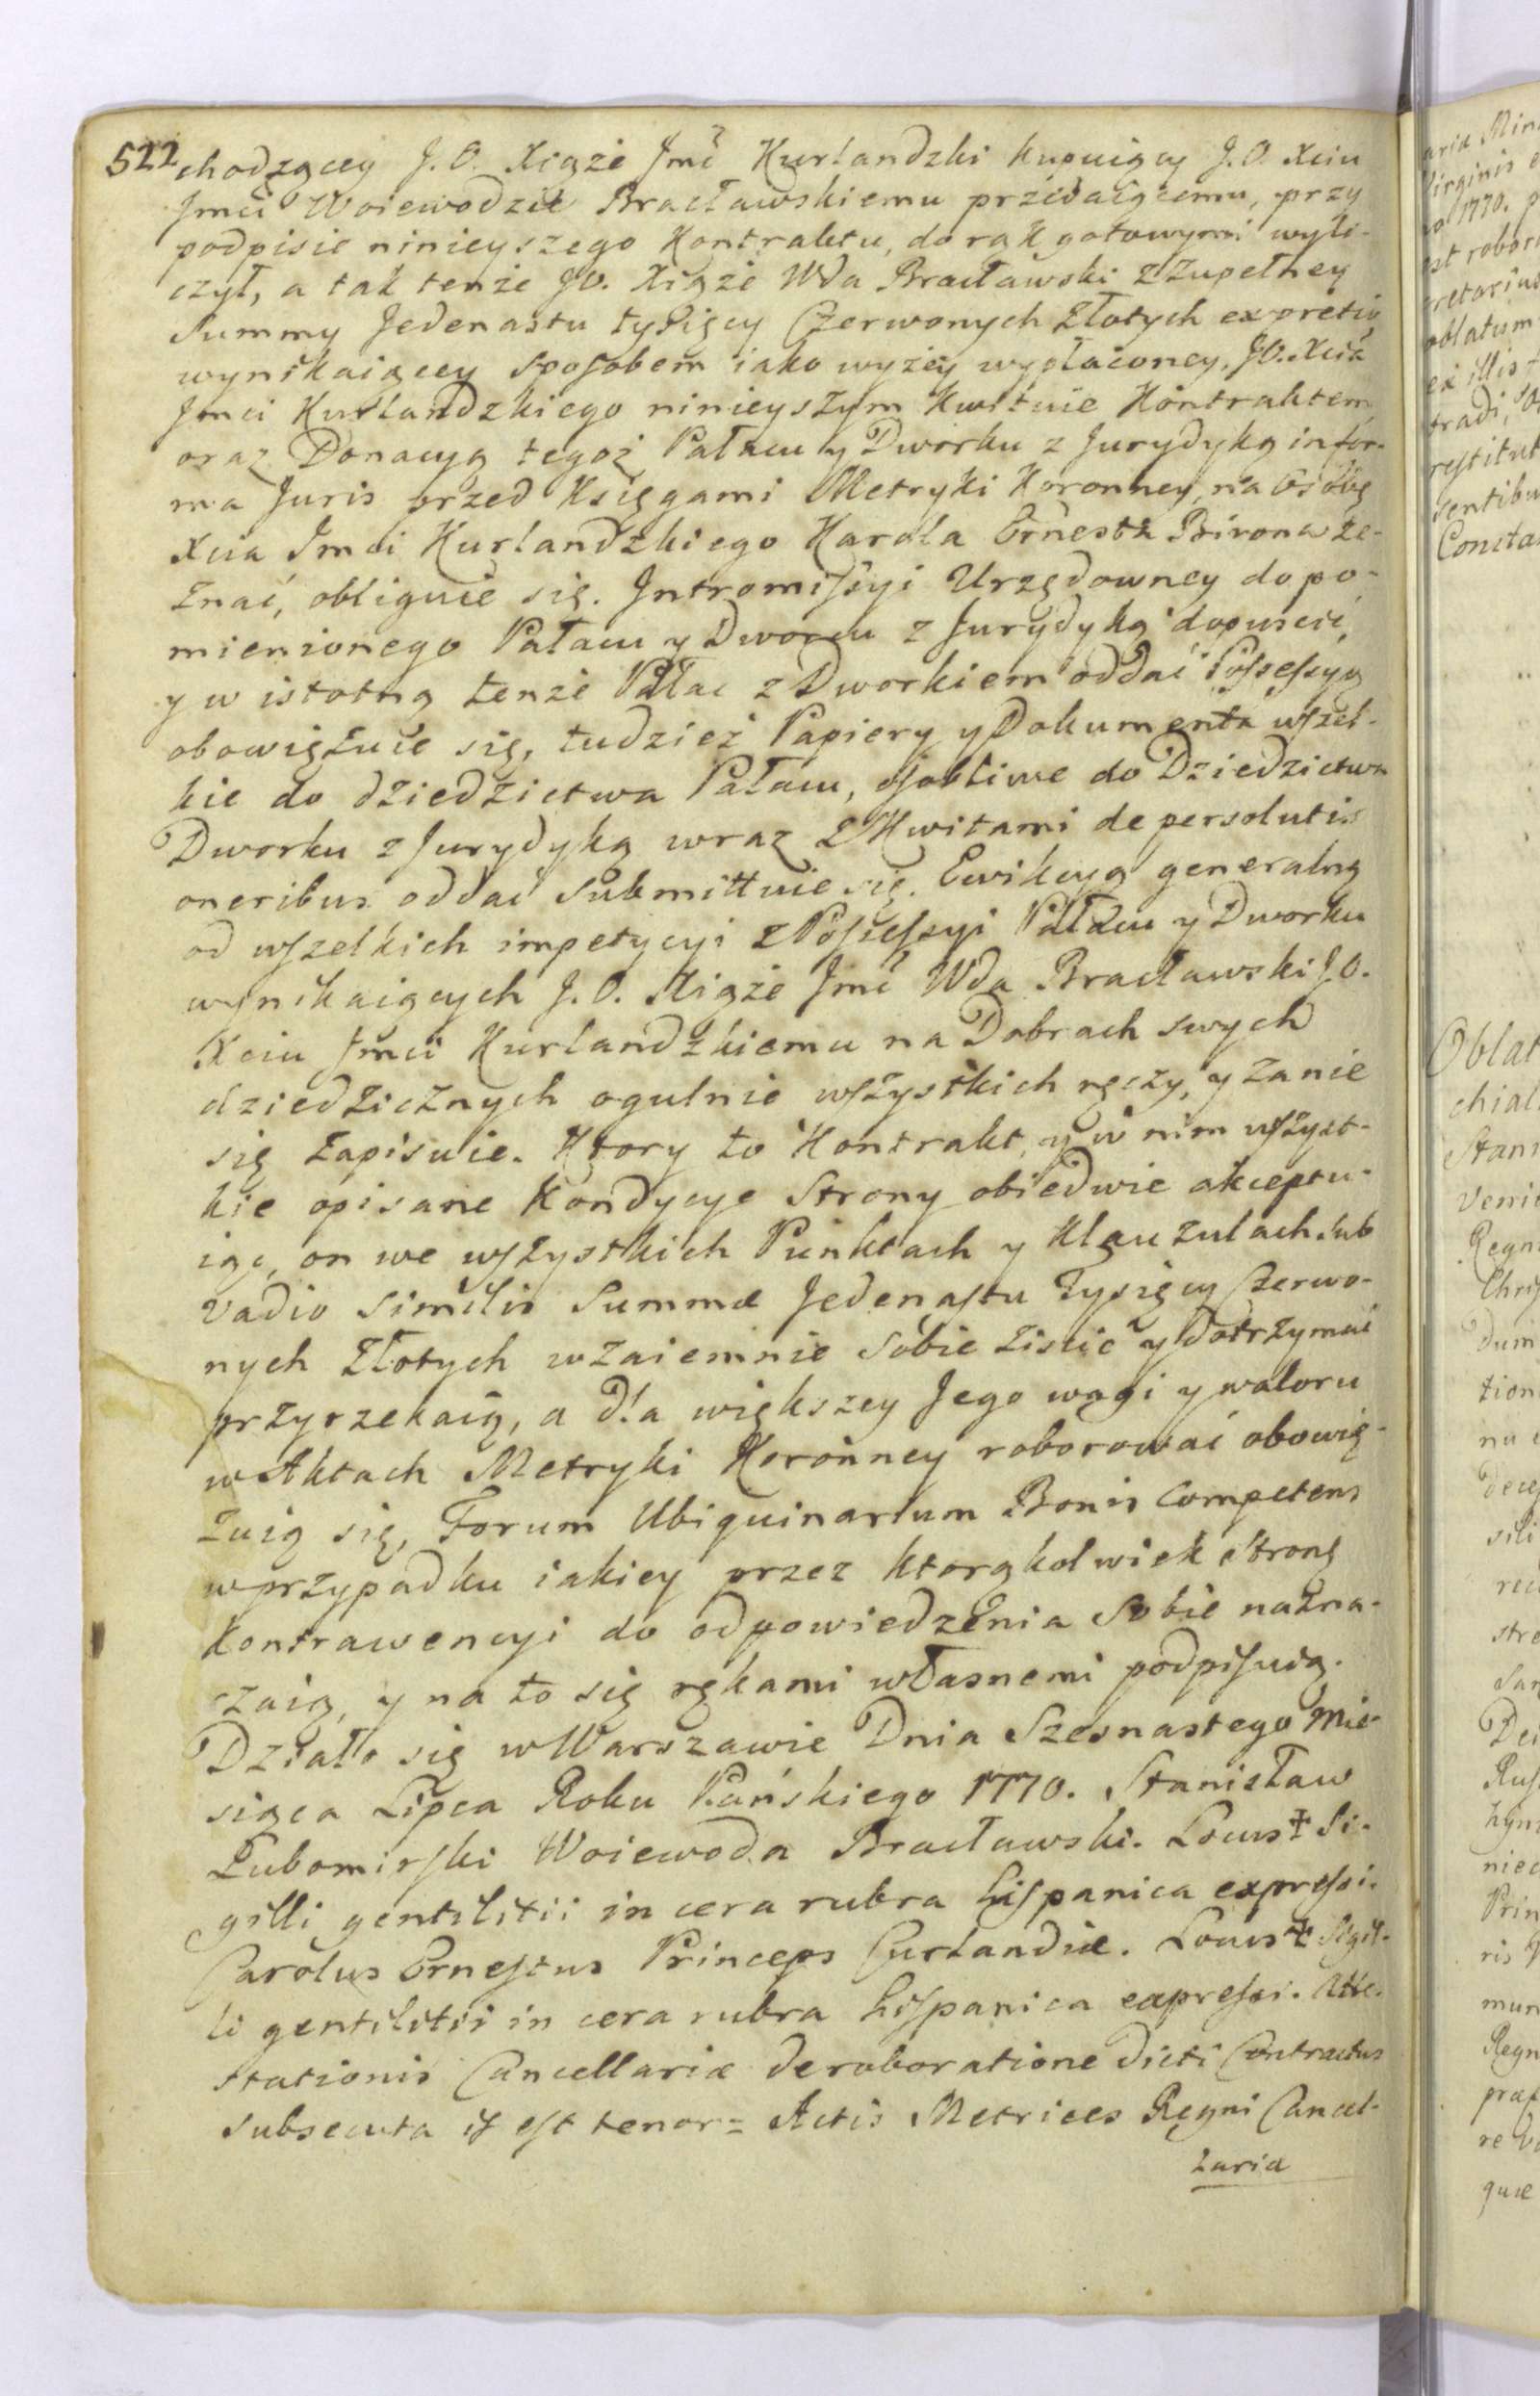 522
chodzącey J. O. Xiąże Jmć Kurlandzki kupuiący J. O. Xciu
Jmci Woiewodzie Bracławskiemu przedaiącemu, przy
podpisie ninieyszego Kontraktu, do rąk gotowymi wyli-
czył, a tak tenże JO. Xiąże Wda Bracławski z zupełney
Summy Jedenastu tysięcy Czerwonych Złotych ex pretio
wynikaiącey sposobem iako wyżey wypłaconey, JO. Xcia
Jmci Kurlandzkiego ninieyszym kwituie Kontraktem
oraz Donacyą tegoż Pałacu y Dworku z Jurydyką in for-
ma Juris przed Księgami Metryki Koronney, na Osobę
Xcia Jmci Kurlandzkiego Karola Ernesta Birona ze-
znać, obliguie się. Intromissyi Urzędowney do po-
mienionego Pałacu y Dworcu z Jurydyką dopuścić,
y w istotną tenże Pałac z Dworkiem oddać Possessyą
obowięzuie się, tudzież Papiery y Dokumenta wszel-
kie do dziedzictwa Pałacu, osobliwe do Dziedzictwa
Dworku z Jurydyką wraz z Kwitami de persolutis
oneribus oddać submittuie się. Ewikcyą generalną
od wszelkich impetycyi z Possessyi Pałacu y Dworku
wynikaiących J. O. Xiąże Jmć Wda Bracławski J. O.
Xciu Jmci Kurlandzkiemu na Dobrach swych
dziedzicznych ogulnie wszystkich ręczy, y zanie
się zapisuie. Ktory to Kontrakt, y w nim wszyst-
kie opisane Kondycye Strony obiedwie akceptu-
iąc, on we wszystkich Punktach y Klauzulach sub
vadio similis Summæ Jedenastu Tysięcy Czerwo-
nych Złotych wzaiemnie sobie ziścić y dotrzymać
przyrzekaią, a dla większey Jego wagi y waloru
w Aktach Metryki Koronney roborować obowię-
zuią się, Forum Ubiquinarium Bonis Competens
w przypadku iakiey przez ktorąkolwiek stronę
Kontrawencyi do odpowiedzenia sobie nazna-
czaią, y na to się rękami własnemi podpisuią.
Działo się w Warszawie Dnia Szesnastego Mie-
siąca Lipca Roku Pańskiego 1770. Stanisław
Lubomirski Woiewoda Bracławski. Locus ‡ Si-
gilli gentilitii in cera rubra hispanica expressi.
Carolus Ernestus Princeps Curlandiæ. Locus ‡ Sigil-
li gentilitii in cera rubra hispanica expressi. Atte-
stationis Cancellariæ de roboratione dicti Contractus
subsecuta is est tenor = Actis Metrices Regni Cancel-
lariæ